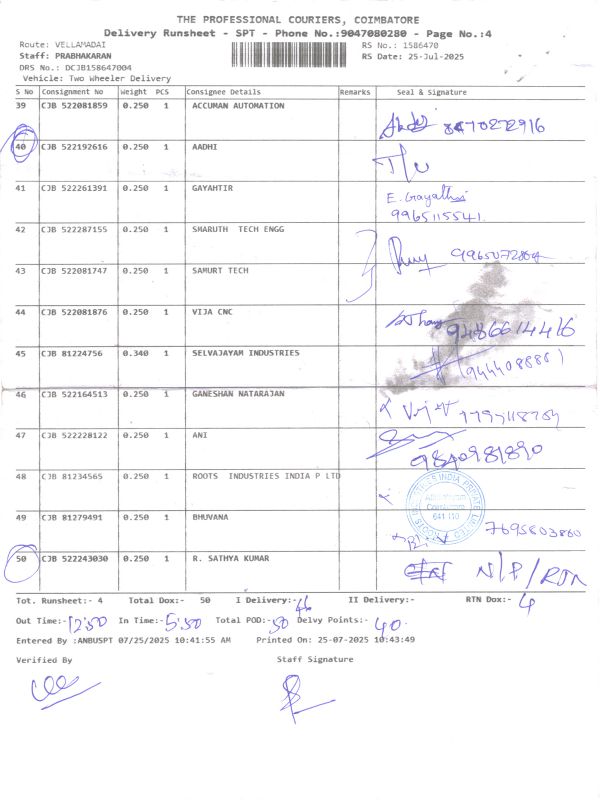 THE PROFESSIONAL COURIERS, COIMBATORE
Delivery Runsheet - SPT - Phone No.:9047080280 - Page No.:4
Route: VELLAMADAI RS No.: 1586470
Staff: PRABHAKARAN RS Date: 25-Jul-2025
DRS No.: DCJB158647004
Vehicle: Two Wheeler Delivery
S No Consignment No Weight PCS Consignee Details Remarks Seal & Signature
39 CJB 522081859 0.250 1 ACCUMAN AUTOMATION
40 CJB 522192616 0.250 1 AADHI
41 CJB 522261391 0.250 1 GAYAHTIR E. Gayathri
9965115541.
42 CJB 522287155 0.250 1 SMARUTH TECH ENGG
43 CJB 522081747 0.250 1 SAMURT TECH
44 CJB 522081876 0.250 1 VIJA CNC 9486614416
45 CJB 81224756 0.340 1 SELVAJAYAM INDUSTRIES
46 CJB 522164513 0.250 1 GANESHAN NATARAJAN
47 CJB 522228122 0.250 1 ANI
9840981890
48 CJB 81234565 0.250 1 ROOTS INDUSTRIES INDIA P LTD
49 CJB 81279491 0.250 1 BHUVANA 7695803860
50 CJB 522243030 0.250 1 R. SATHYA KUMAR N/P/RTN
Tot. Runsheet:- 4 Total Dox:- 50 I Delivery:- 46 II Delivery:- RTN Dox:- 4
Out Time:- 12:50 In Time:- 5:50 Total POD:- 50 Delvy Points:- 40.
Entered By :ANBUSPT 07/25/2025 10:41:55 AM Printed On: 25-07-2025 10:43:49
Verified By Staff Signature